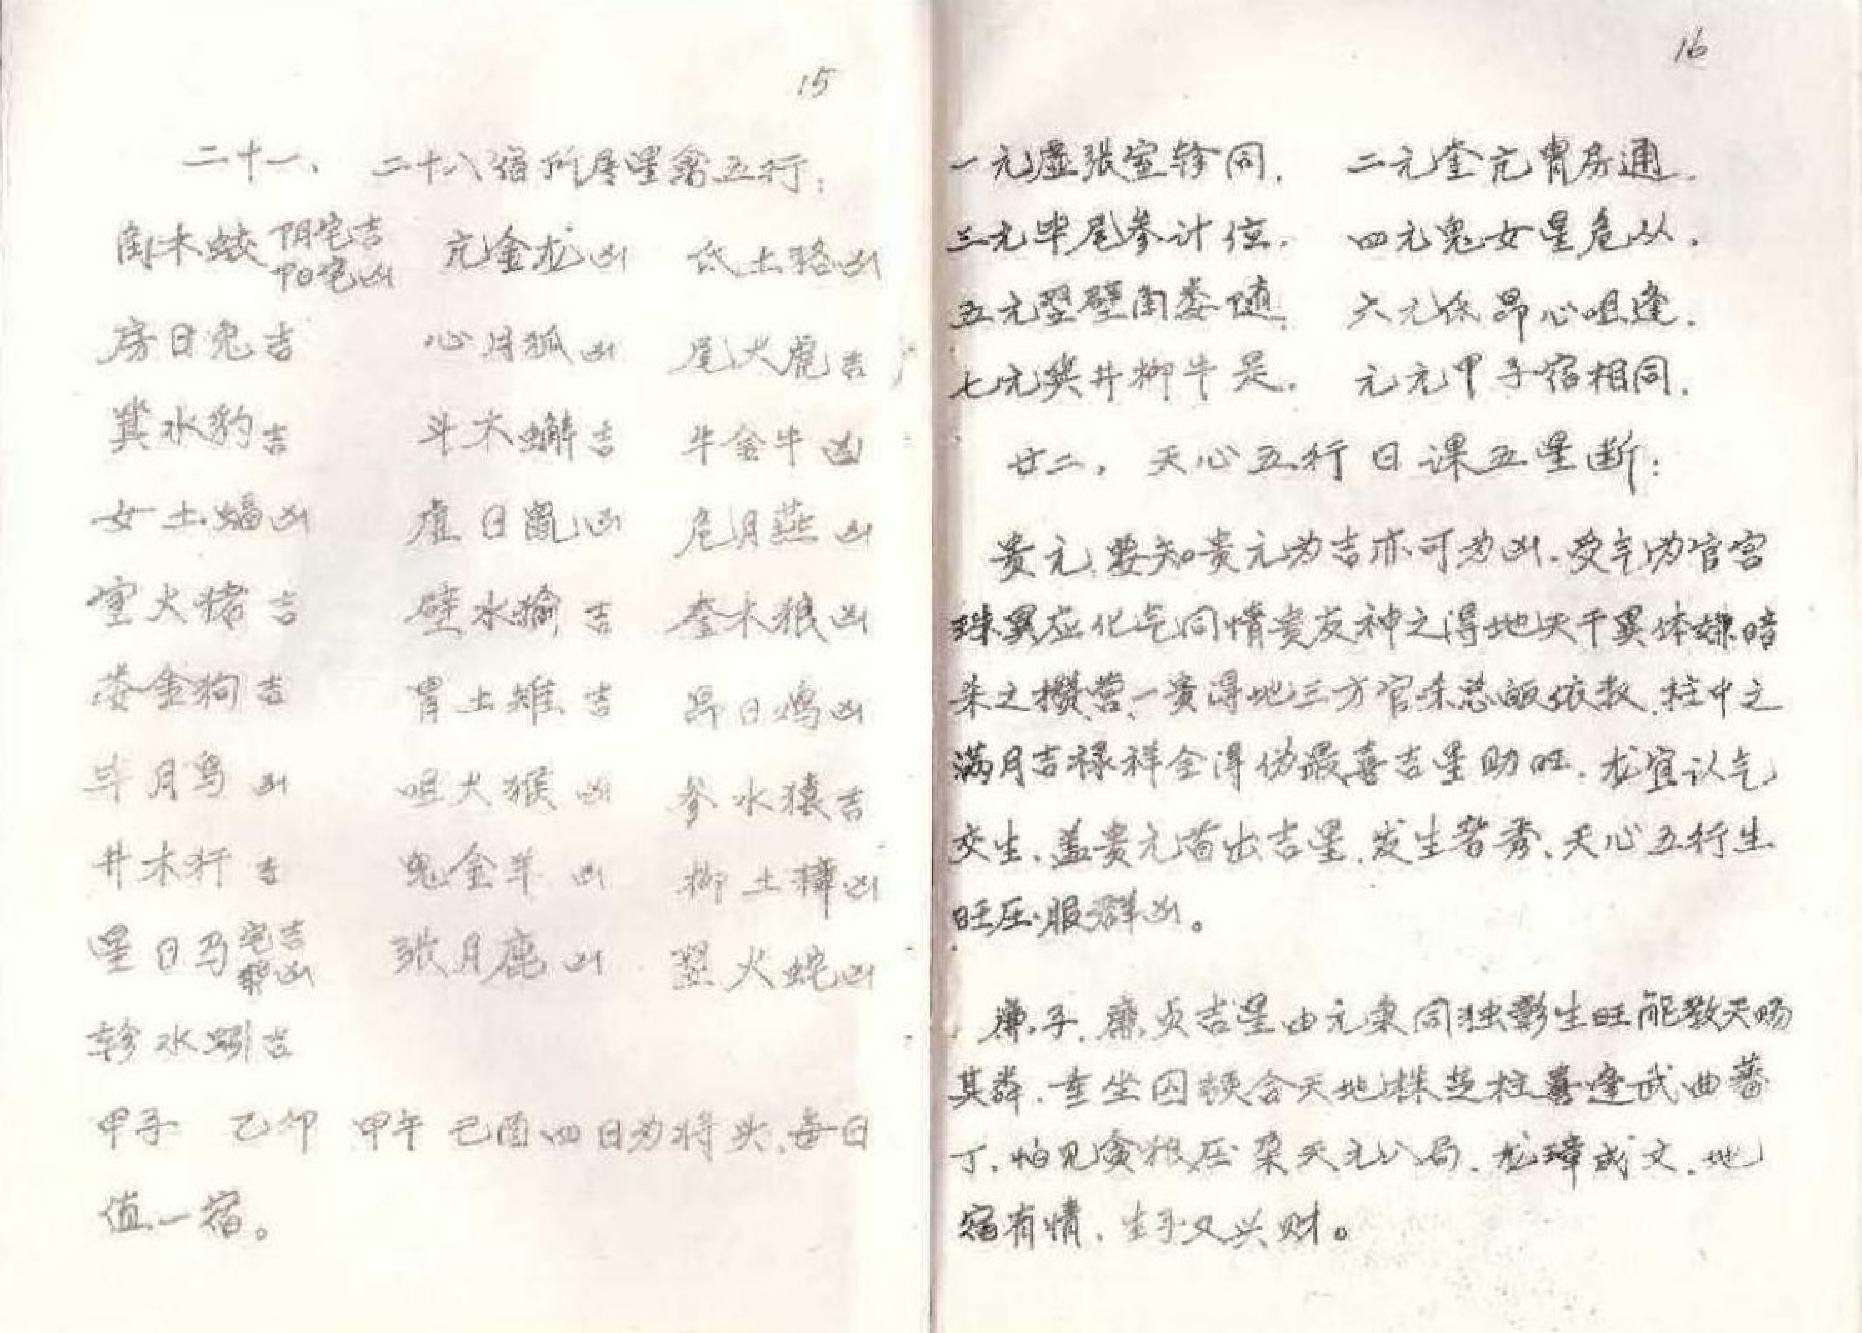 15
二十一、二十八宿所居星禽五行：
角木蛟 阴宅吉 阳宅凶 亢金龙凶 低土骆凶
房日兔吉 心月狐凶 尾火虎吉
箕水豹吉 斗木蠏吉 牛金牛凶
女土蝠凶 虚日鼠凶 危月燕凶
室火猪吉 壁水㺄吉 奎木狼凶
娄金狗吉 胃土雉吉 昴日鸡凶
毕月乌凶 咀火猴凶 参水猿吉
井木犴吉 鬼金羊凶 柳土獐凶
星日马 宅吉 葬凶 张月鹿凶 翌火蛇凶
轸水蚓吉
甲子 乙卯 甲午 己酉四日为将头，每日
值一宿。
16
一元虚张室轸同． 二元奎亢胃房通．
三元毕尾参计位． 四元鬼女星危从．
五元翌壁角娄随． 六元低昴心咀逢．
七元箕井柳牛是． 元元甲子宿相同．
廿二．天心五行日课五星断：
贵元．要知贵元为吉亦可为凶．受气为官宫
珠异应化气同情贵友神之得地天干异体嫌暗
杀之攒营．一贵得地三方官杀总皈依权．柱中之
满月吉禄祥全得伪最喜吉星助旺．龙宜认气
交生．盖贵元首出吉星．发生者秀．天心五行生
旺压服群凶。
廉子．廉贞吉星由元秉同独彰生旺能教天赐
其粦．重坐囚 合天地 柱喜逢武曲蕃
丁．怕见贪狼压 天元八局．龙璋成文．地
宿有情．生子又兴财。